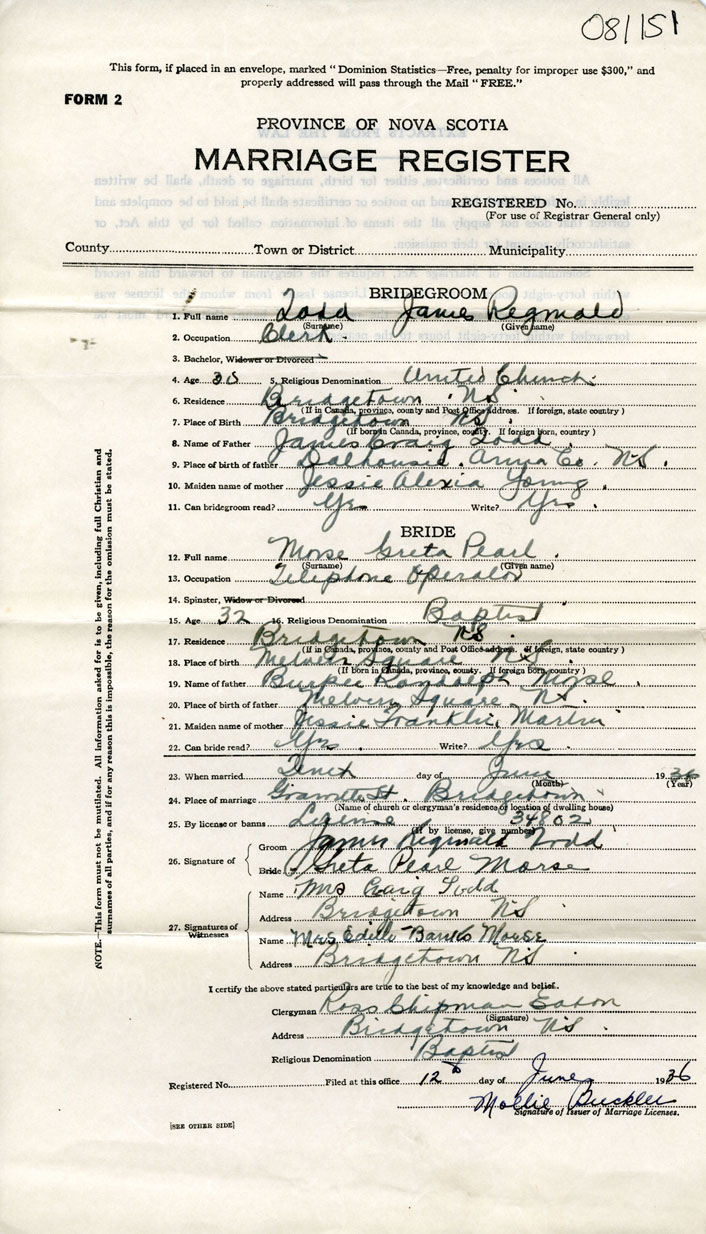 08/151
This form, if placed in an envelope, marked " Dominion Statistics—Free, penalty for improper use $300," and
properly addressed will pass through the Mail " FREE."
FORM 2
PROVINCE OF NOVA SCOTIA
MARRIAGE REGISTER
REGISTERED No.
(For use of Registrar General only)
County Town or District Municipality
BRIDEGROOM
1. Full name Todd James Reginald
(Surname) (Given name)
2. Occupation Clerk
3. Bachelor, Widower or Divorced
4. Age 35 5. Religious Denomination United Church
6. Residence Bridgetown NS
(If in Canada, province, county and Post Office address. If foreign, state country )
7. Place of Birth Bridgetown NS
(If born in Canada, province, county. If foreign born, country )
8. Name of Father James Craig Todd
9. Place of birth of father Dalhousie, Anna Co. NS.
10. Maiden name of mother Jessie Alexia Young
11. Can bridegroom read? Yes Write? Yes
BRIDE
12. Full name Morse Greta Pearl
(Surname) (Given name)
13. Occupation Telephone Operator
14. Spinster, Widow or Divorced
15. Age 32 16. Religious Denomination Baptist
17. Residence Bridgetown NS
(If in Canada, province, county and Post Office address. If foreign, state country )
18. Place of birth Melvern Square NS
(If born in Canada, province, county. If foreign born, country )
19. Name of father Burpee Randolph Morse
20. Place of birth of father Melvern Square, NS
21. Maiden name of mother Jessie Franklin Martin
22. Can bride read? Yes Write? Yes
23. When married day of June 1936
(Month) (Year)
24. Place of marriage Granville St. Bridgetown
(Name of church or clergyman's residence or location of dwelling house)
25. By license or banns License 34802
(If by license, give number)
26. Signature of
Groom James Reginald Todd
Bride Greta Pearl Morse
27. Signatures of Witnesses
Name Mrs Craig Todd
Address Bridgetown NS
Name Mrs Banks Morse
Address Bridgetown NS
I certify the above stated particulars are true to the best of my knowledge and belief.
Clergyman Ross Chipman Eaton
(Signature)
Address Bridgetown NS
Religious Denomination Baptist
Registered No. Filed at this office 12th day of June 1936
Mollie Buckler
Signature of Issuer of Marriage Licenses.
[SEE OTHER SIDE]
NOTE.—This form must not be mutilated. All information asked for is to be given, including full Christian and
surnames of all parties, and if for any reason this is impossible, the reason for the omission must be stated.